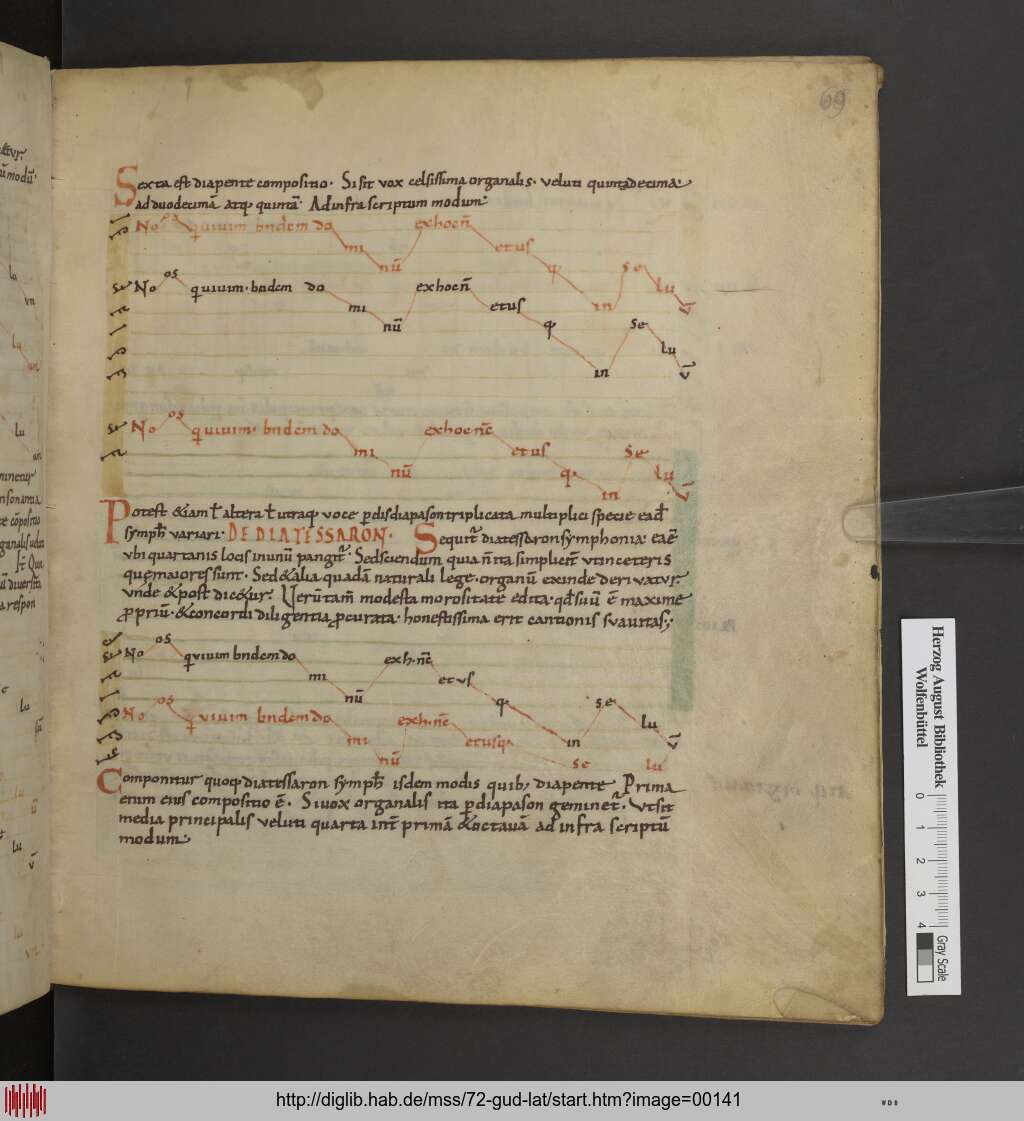 69
Sexta est diapente compositio· Si sit vox celsissima organalis· veluti quintadecima·
ad duodecimā atq; quintā· Ad infra scriptum modum·
No os qui uiuim bndem do mi nū exhoc nc etus q in se lu v
No os qui uiuim· bndem do mi nū exhoc nc etus q in se lu v
No os qui uiuim· bndem do mi nū exhoc nc etus q· in se lu v
Potest &iam ł altera ł utraq; voce p disdiapason triplicata multiplici specie eadē
symph variari· DE DIATESSARON· Sequit diatessaron symphonia· eaē
ubi quartanis locis in unum pangit· Sed sciendum quia n ita simplicit ut in ceteris
que maiores sunt· Sed &alia quadā naturali lege· organū exinde derivatur·
unde &post dicetur· Verūtam modesta morositate edita· qd suū ē maxime
propriū· &concordi diligentia pcurata· honestissima erit cantionis suavitas·
No os qui uiuim bndem do mi nū exh·nc et us q in se lu v
No os qui uiuim bndem do mi nū exh·nc etusq se lu
Componitur quoq; diatessaron symph isdem modis quib; diapente Prima
enim eius compositio ē· Si uox organalis ita p diapason geminet· Ut sit
media principalis veluti quarta int primā &octavā ad infra scriptū
modum·
Herzog August Bibliothek
Wolfenbüttel
0 1 2 3 4
Gray Scale
http://diglib.hab.de/mss/72-gud-lat/start.htm?image=00141